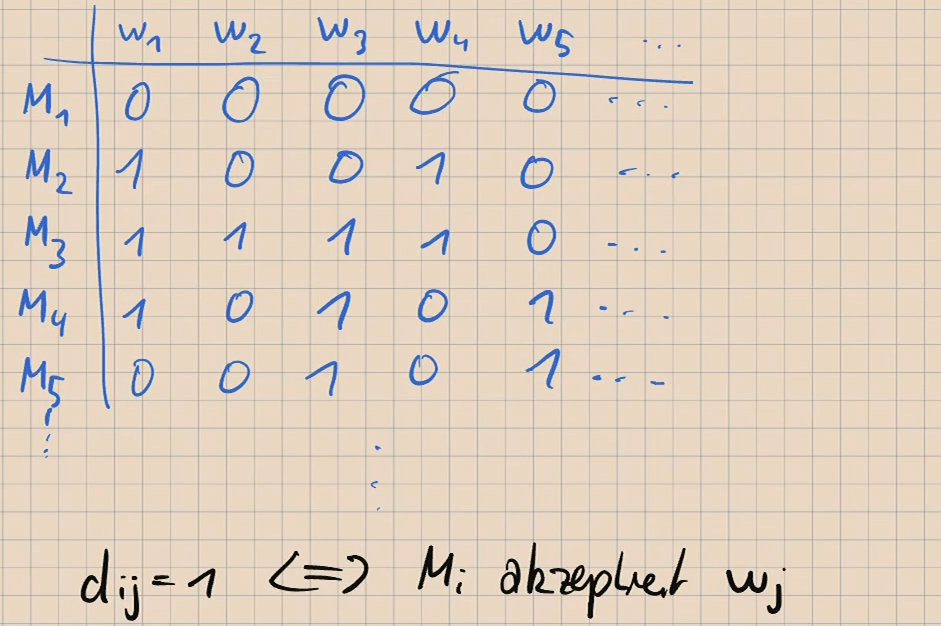 w₁ w₂ w₃ w₄ w₅ ...
M₁ 0 0 0 0 0 ...
M₂ 1 0 0 1 0 ...
M₃ 1 1 1 1 0 ...
M₄ 1 0 1 0 1 ...
M₅ 0 0 1 0 1 ...
dij = 1 <=> Mi akzeptiert wj